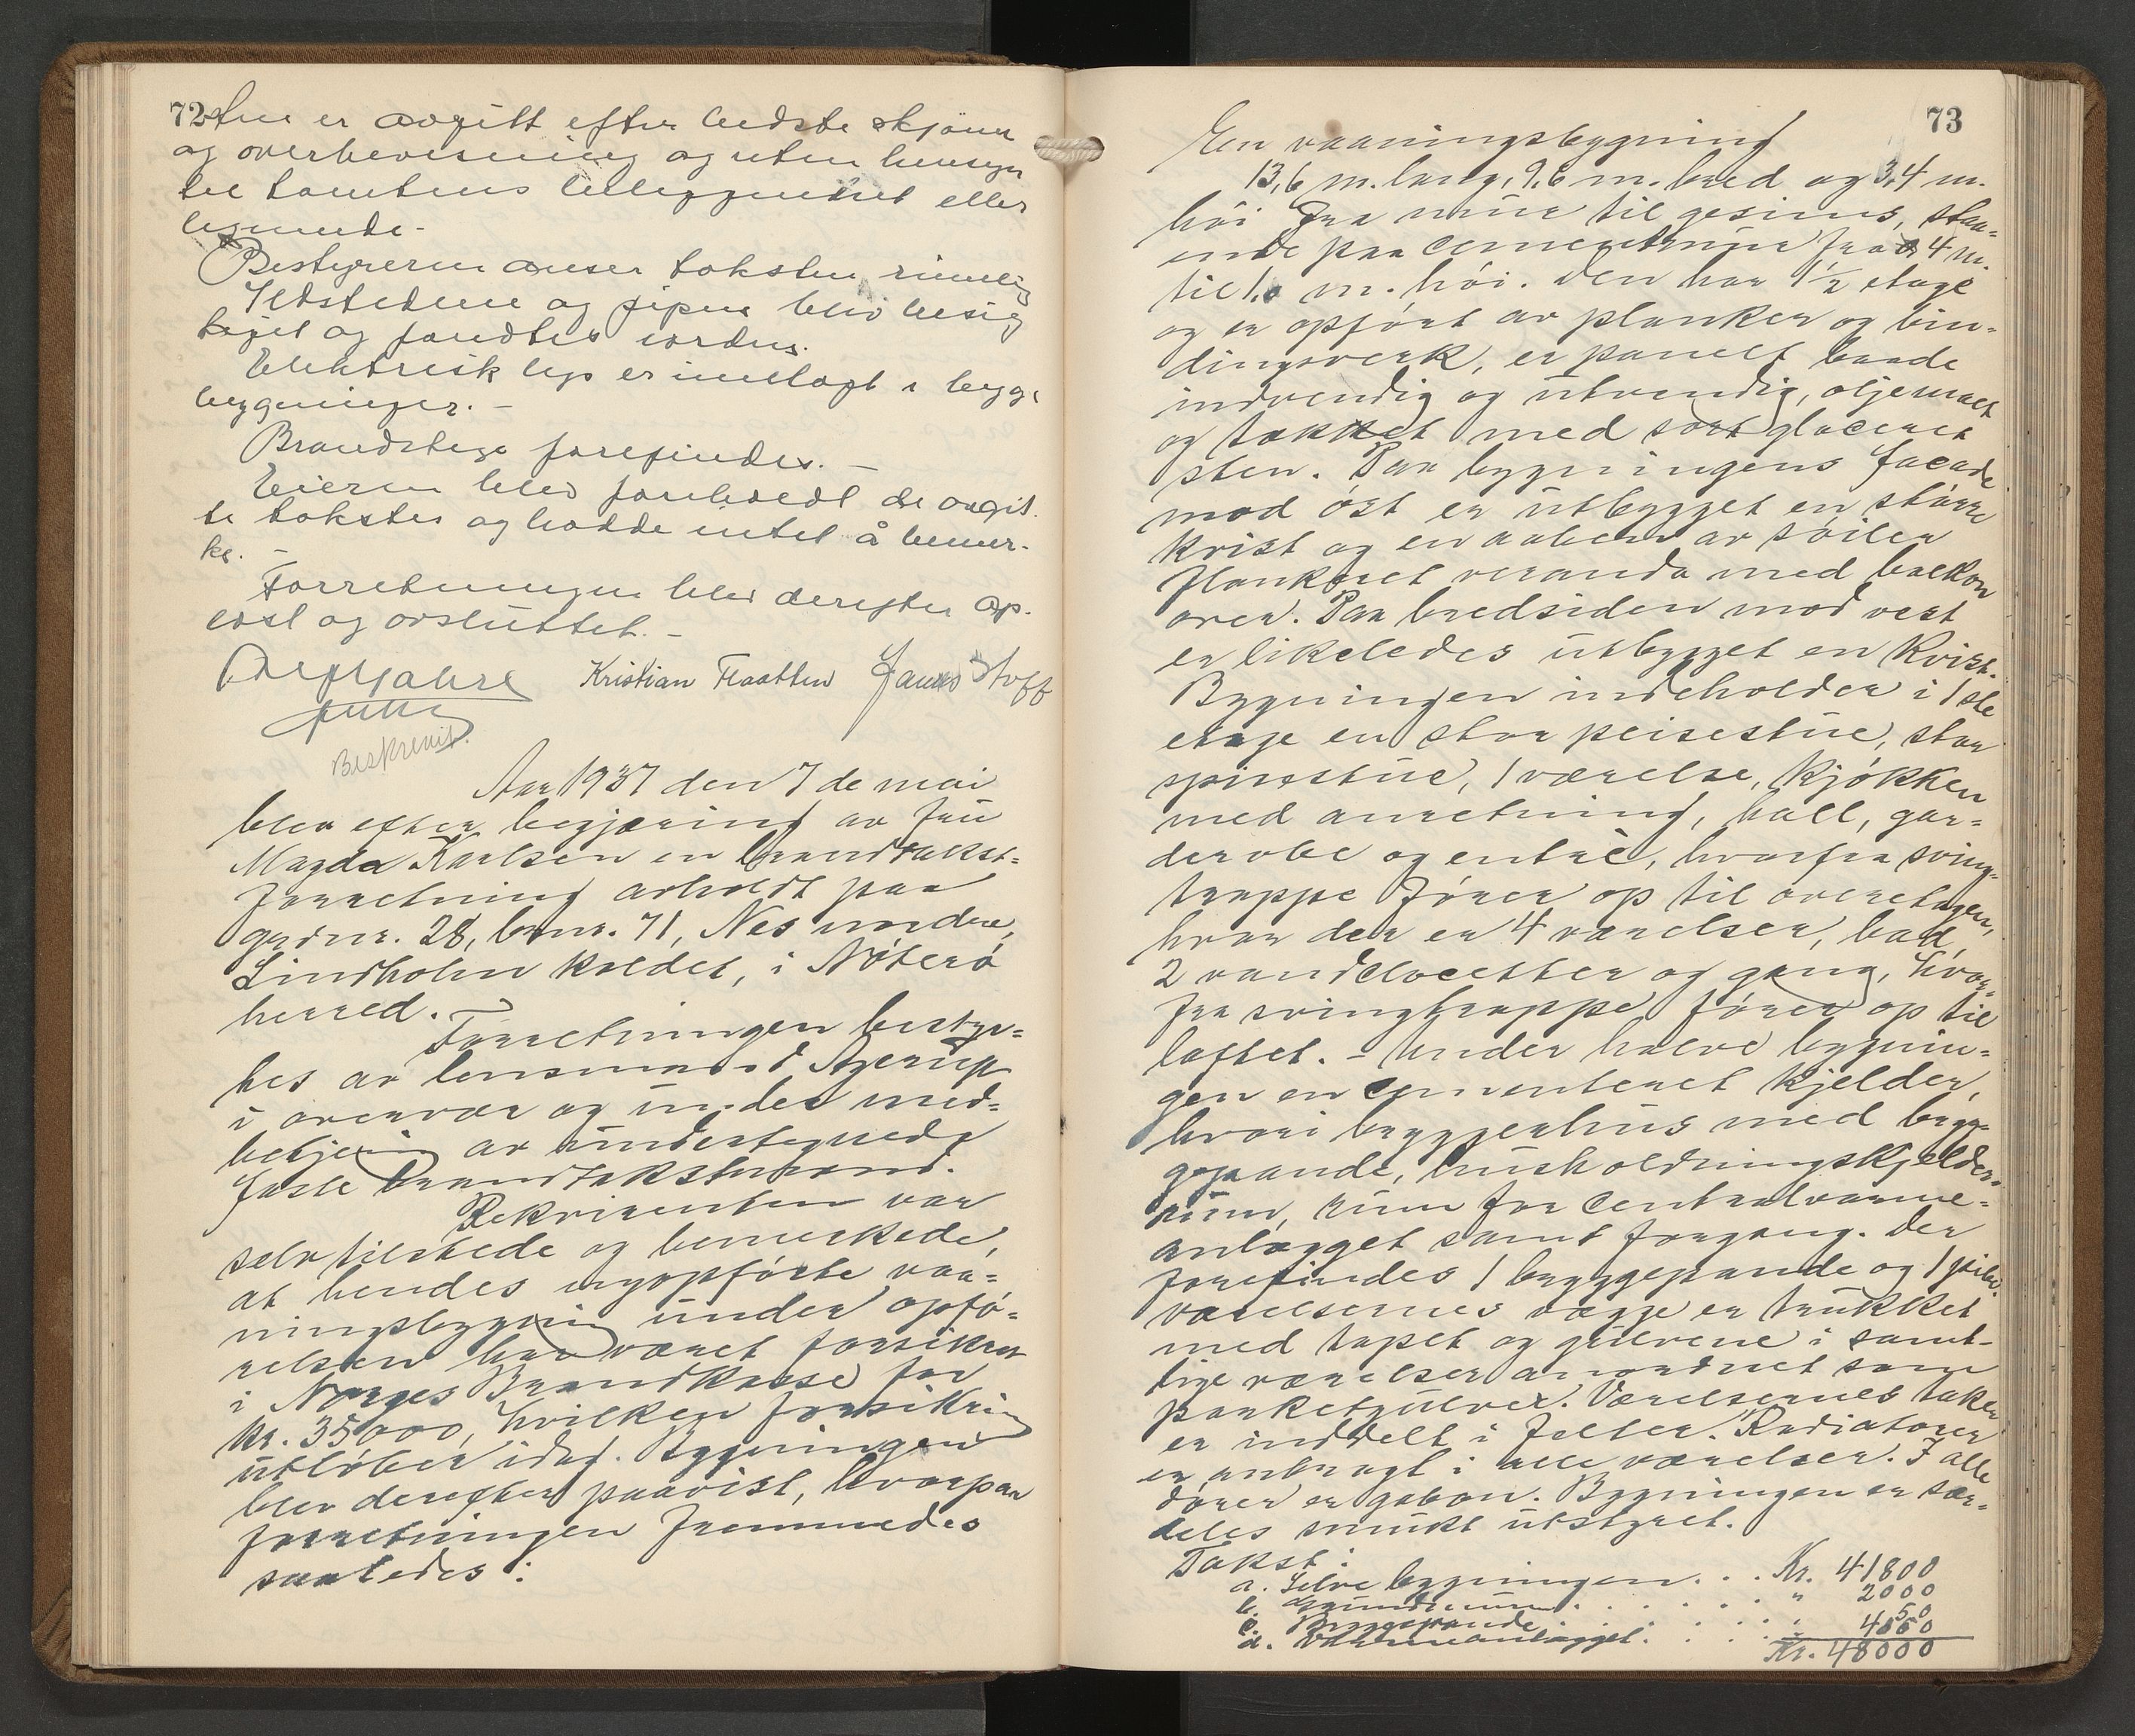 72
ten er avgitt efter bedste skjønn
og overbevisning og uten hensyn
til tomtens beliggenhet eller
lignende.
Bestyreren anser taksten rimelig
Ildstedene og pipene blev besig
tiget og fandtes i orden.
Elektrisk lys er innlagt i begge
bygninger. —
Brandstige forefindes. —
Eieren blev forelæst de avgit
te takster og hadde intet å bemer-
ke. —
Forretningen blev derefter op-
lest og avsluttet. —
Kristian Flaatten
Beskrevet.
Aar 1937 den 7 de mai
blev efter begjæring av fru
Magda Karlsen en brandtakst-
forretning avholdt paa
gardnr. 28, brnr. 71, Nes nordre,
Lindholm kaldet, i Nøterø
herred.
Forretningen besty-
res av lensmand Agerup
i overvær og under med-
betjening av undertegnede
faste brandtakstmænd.
Rekvirenten var
selv tilstede og bemerkede,
at hendes nyopførte vaa-
ningsbygning under opfø-
relsen har været forsikret
i Norges Brandkasse for
kr. 35000, hvilken forsikring
utløber idag. Bygningen
blev derefter paavist, hvorpaa
forretningen fremmedes
saaledes:
73
En vaaningsbygning
13,6 m. lang, 9,6 m. bred og 3,4 m.
høi fra mur til gesims, staa-
ende paa cementmur fra 4 m.
til 1,0 m. høi. Den har 1½ etage
og er opført av planker og bin-
dingsverk, er panelt baade
indvendig og utvendig, oljemalt
og tækket med sort glaceret
sten. Paa bygningens facade
mod øst er utbygget en større
kvist og en aaben av søiler
flankeret veranda med balkon
over. Paa bredsiden mod vest
er likeledes utbygget en kvist.
Bygningen indeholder i 1ste
etage en stor peisestue, stor
spisestue, 1 værelse, kjøkken
med anretning, hall, gar-
derobe og entré, hvorfra sving-
trappe fører op til overetagen,
hvor der er 4 værelser, bad,
2 vandclosetter og gang, hvor-
fra svingtrappe fører op til
loftet. – Under halve bygnin-
gen en cementeret kjelder,
hvori bryggerhus med bryg-
gepande, husholdningskjelder-
rum, rum for centralvarme-
anlægget samt forgang. Der
forefindes 1 bryggepande og 1 pipe.
Værelsernes vægge er trukket
med tapet og gulvene i samt-
lige værelser anordnet som
parketgulver. Værelsernes taker
er inddelt i felter. Radiatorer
er anbragt i alle værelser. I alle
dører er gabon. Bygningen er sær-
deles smukt utstyret.
Takst:
a. Selve bygningen . . . Kr. 41800
b. Grundmuren . . . . . " 2000
c. Bryggepande . . . . . " 50
d. Varmeanlægget . . . . "
Kr. 48000